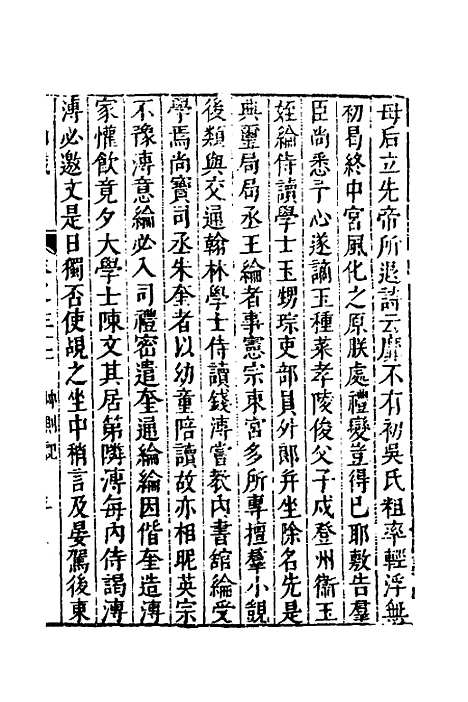 母后立先帝所退詩云靡不有初吳氏粗率輕浮無
初曷終中宮風化之原朕處禮變豈得已耶敷告羣
臣尚悉予心遂謫玉種菜孝陵俊父子戍登州衞玉
姪綸侍讀學士玉甥琮吏部員外郎并坐除名先是
典璽局局丞王綸者事憲宗東宮多所專擅羣小覬
後類與交通翰林學士侍讀錢溥嘗教內書館綸受
學焉尚寶司丞朱奎者以幼童陪讀故亦相昵英宗
不豫溥意綸必入司禮密遣奎通綸綸因偕奎造溥
家懽飲竟夕大學士陳文其居第隣溥每內侍謁溥
溥必邀文是日獨否使覘之坐中稍言及晏駕後東